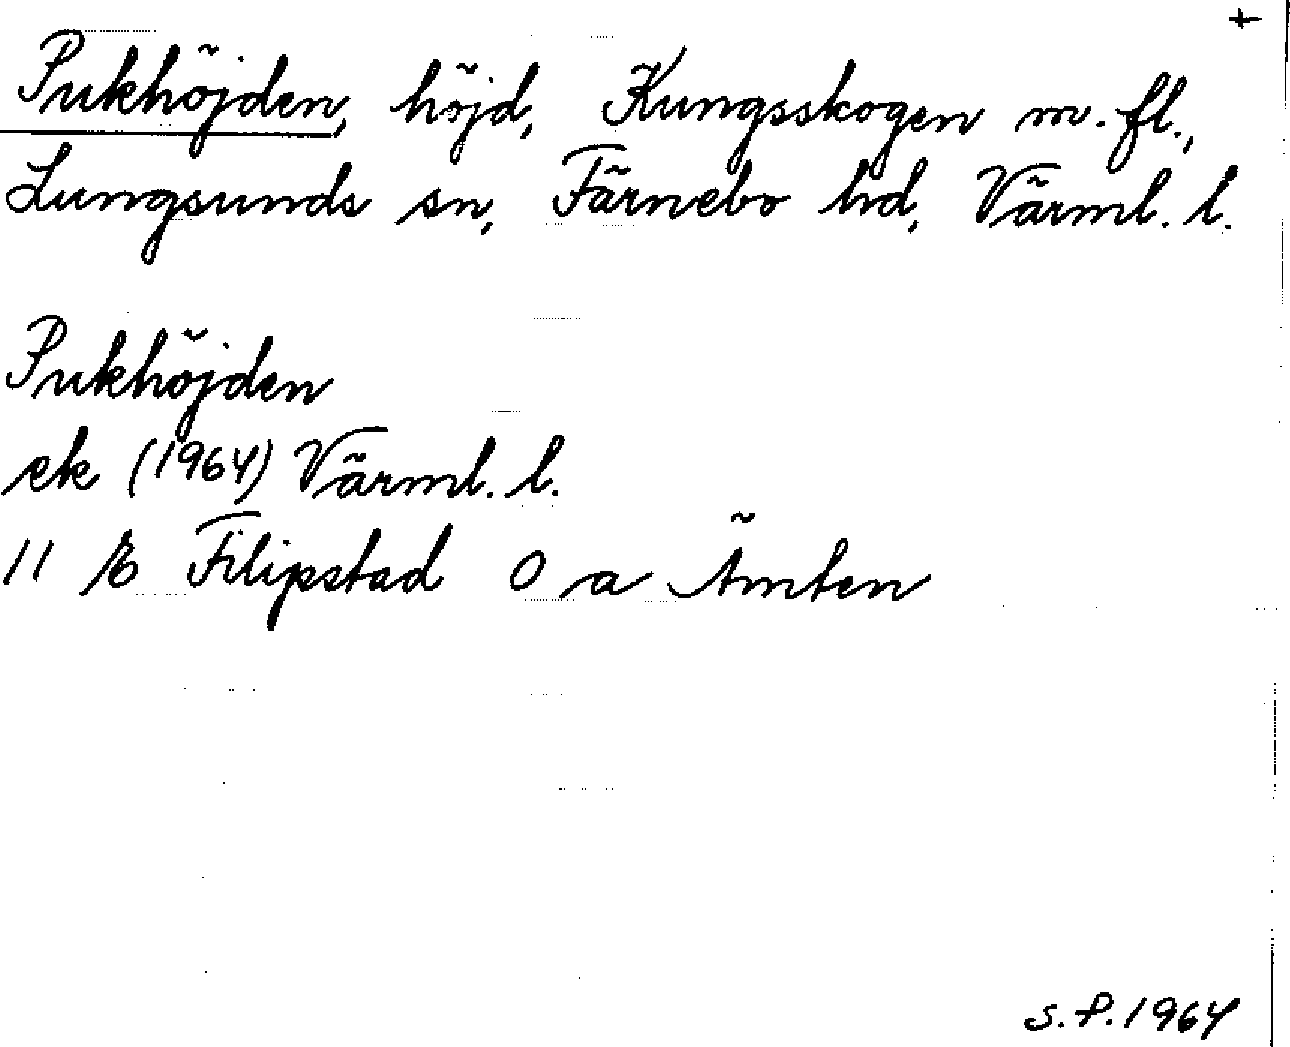 +
Pukhöjden, höjd, Kungsskogen m. fl.,
Lungsunds sn, Färnebo hd, Värml. l.
Pukhöjden
ek (1964) Värml. l.
11 E Filipstad O a Ämten
S.P. 1964